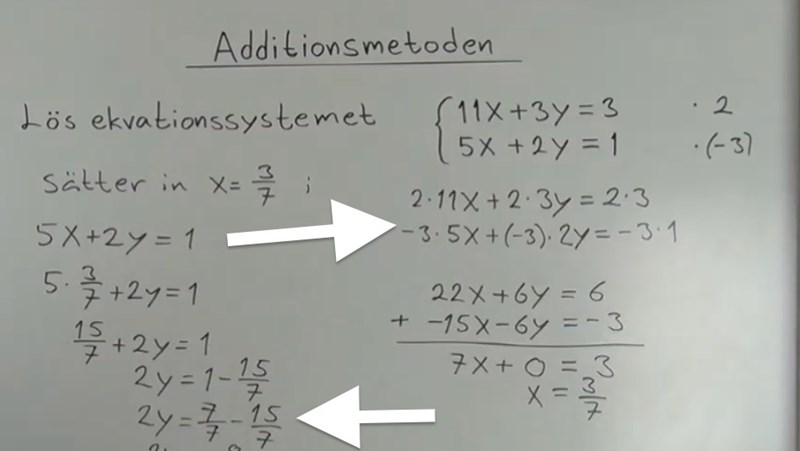 Additionsmetoden
Lös ekvationssystemet
11x+3y=3 · 2
5x+2y=1 ·(-3)
2·11x+2·3y=2·3
-3·5x+(-3)·2y=-3·1
22x+6y=6
+ -15x-6y=-3
7x+0=3
x=3/7
Sätter in x=3/7 i
5x+2y=1
5·3/7+2y=1
15/7+2y=1
2y=1-15/7
2y=7/7-15/7